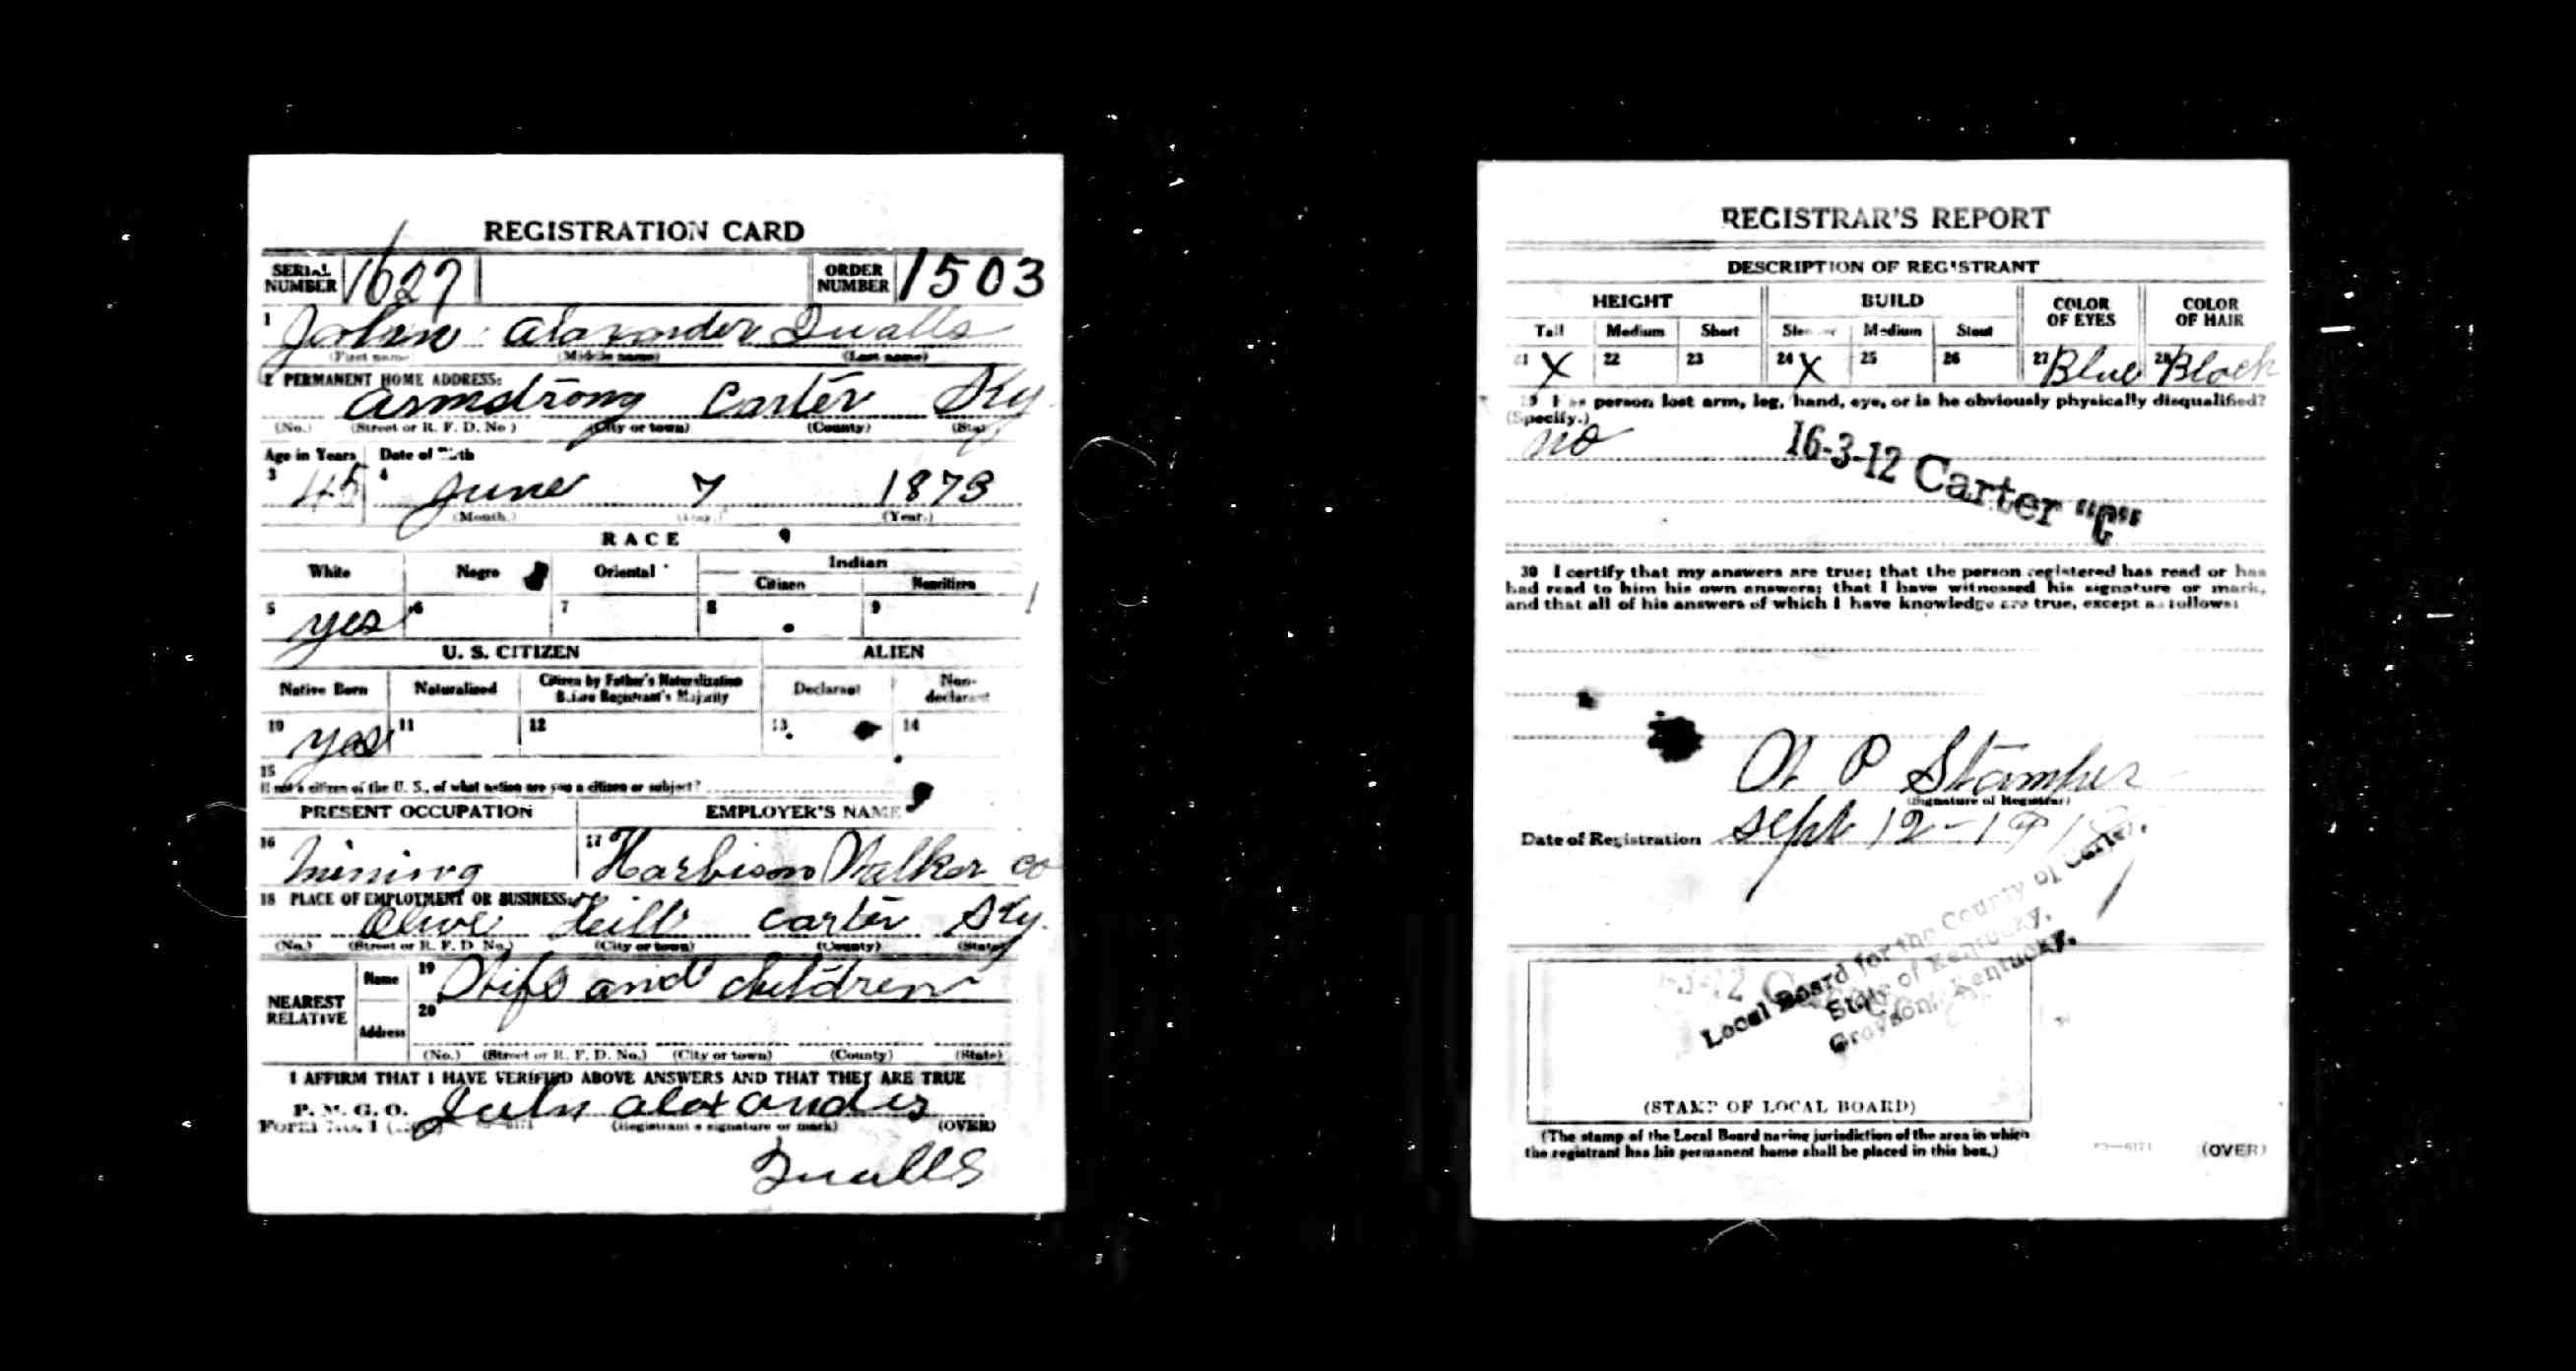 REGISTRATION CARD
SERIAL NUMBER 1627 ORDER NUMBER 1503
1 John Alaxander Qualls
(First name) (Middle name) (Last name)
2 PERMANENT HOME ADDRESS:
Armstrong Carter Ky
(No.) (Street or R. F. D. No.) (City or town) (County) (State)
Age in Years Date of Birth
3 45 4 June 7 1873
(Month.) (Day.) (Year.)
RACE
White Negro Oriental Indian
Citizen Noncitizen
5 yes 6 7 8 9
U. S. CITIZEN ALIEN
Native Born Naturalized Citizen by Father's Naturalization Before Registrant's Majority Declarant Non-declarant
10 yes 11 12 13 14
15
If not a citizen of the U. S., of what nation are you a citizen or subject?
PRESENT OCCUPATION EMPLOYER'S NAME
16 mining 17 Harbison Walker Co
18 PLACE OF EMPLOYMENT OR BUSINESS:
Olive Hill Carter Ky.
(No.) (Street or R. F. D. No.) (City or town) (County) (State)
NEAREST RELATIVE Name 19 Wife and children
Address 20
(No.) (Street or R. F. D. No.) (City or town) (County) (State)
I AFFIRM THAT I HAVE VERIFIED ABOVE ANSWERS AND THAT THEY ARE TRUE
P. M. G. O.
Form No. 1 John Alaxander
(Registrant's signature or mark) (OVER)
Qualls
REGISTRAR'S REPORT
DESCRIPTION OF REGISTRANT
HEIGHT BUILD COLOR OF EYES COLOR OF HAIR
Tall Medium Short Slender Medium Stout
21 X 22 23 24 X 25 26 27 Blue 28 Black
29 Has person lost arm, leg, hand, eye, or is he obviously physically disqualified?
(Specify.)
no
16-3-12 Carter "C"
30 I certify that my answers are true; that the person registered has read or has
had read to him his own answers; that I have witnessed his signature or mark,
and that all of his answers of which I have knowledge are true, except as follows:
P Stamper
(Signature of Registrar)
Date of Registration Sept 12-1918
Local Board for the County of Carter,
State of Kentucky,
Grayson, Kentucky.
(STAMP OF LOCAL BOARD)
(The stamp of the Local Board having jurisdiction of the area in which
the registrant has his permanent home shall be placed in this box.)
(OVER)